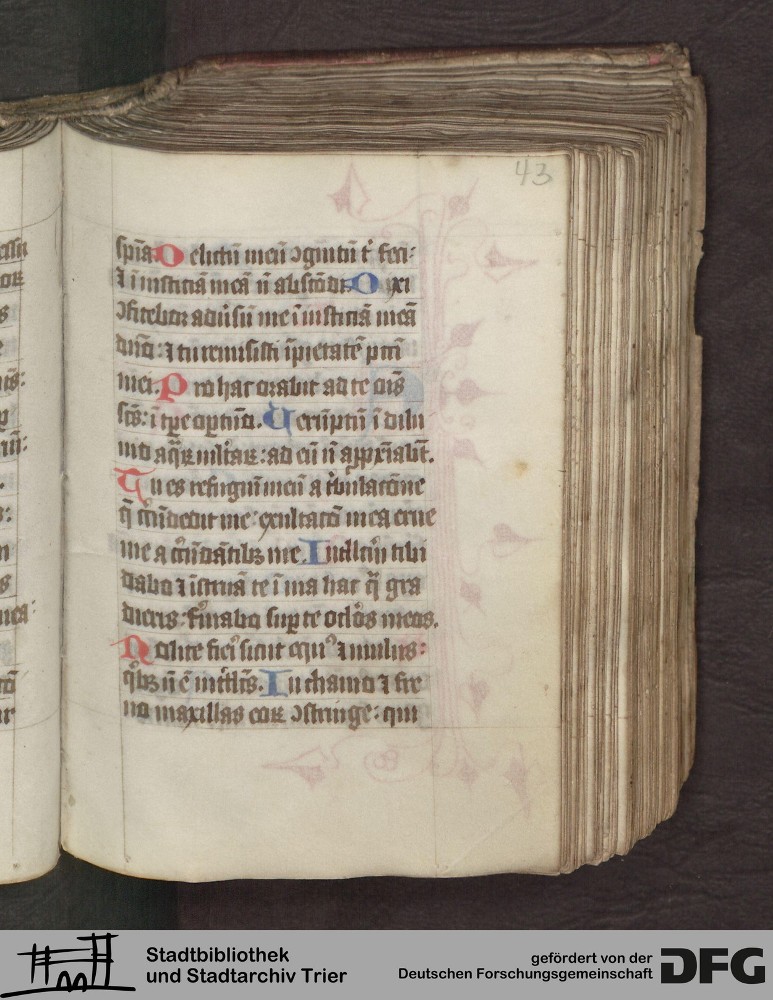 43
spīa Delictū meū ꝯgnitū t' feci:
⁊ īiusticiā meā nō abscōdi. Dixi
ꝯfitebor adūsū me īiusticiā meā
dnō: ⁊ tu remisisti īpietatē pcti
mei. Pro hac orabit ad te oīs
scs: ī tpe oportuō. Verūptn̄ ī dilu
uio aq̄ꝝ multaꝝ: ad eū nō apꝓxīabt.
Tu es refugiū meū a tbulatōne
q̄ circūdedit me: exultaco mea erue
me a circūdātibꝫ me. Intellcm̄ tibi
dabo ⁊ īstruā te ī uia hac q̄ gra
dieris: firmabo suꝑ te oclos meos.
Nolite fieri sicut equꝰ ⁊ mulus:
qibꝫ nō ē intellcs. In chamo ⁊ fre
no maxillas eoꝝ ꝯstringe: qui
Stadtbibliothek
und Stadtarchiv Trier
gefördert von der
Deutschen Forschungsgemeinschaft DFG